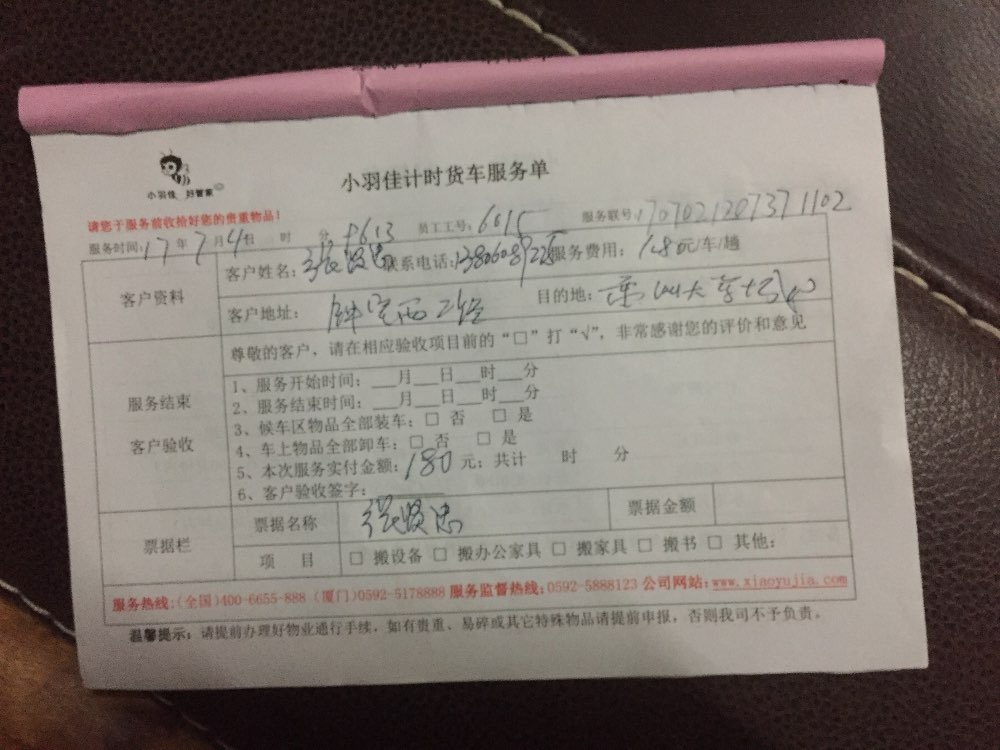 小羽佳 好管家
小羽佳计时货车服务单
请您于服务前收拾好您的贵重物品!
服务时间:17年7月4日 时 分 员工工号:6615 服务联号:
客户资料
客户姓名: 联系电话: 服务费用: 元/车/趟
客户地址: 目的地:
服务结束
客户验收
尊敬的客户,请在相应验收项目前的“□”打“√”,非常感谢您的评价和意见
1、服务开始时间:___月___日___时___分
2、服务结束时间:___月___日___时___分
3、候车区物品全部装车:□ 否 □ 是
4、车上物品全部卸车:□ 否 □ 是
5、本次服务实付金额:180元;共计 时 分
6、客户验收签字:
票据栏
票据名称 张贤忠 票据金额
项 目 □ 搬设备 □ 搬办公家具 □ 搬家具 □ 搬书 □ 其他:
服务热线:(全国)400-6655-888 (厦门)0592-5178888 服务监督热线:0592-5888123 公司网站:www.xiaoyujia.com
温馨提示:请提前办理好物业通行手续,如有贵重、易碎或其它特殊物品请提前申报,否则我司不予负责。